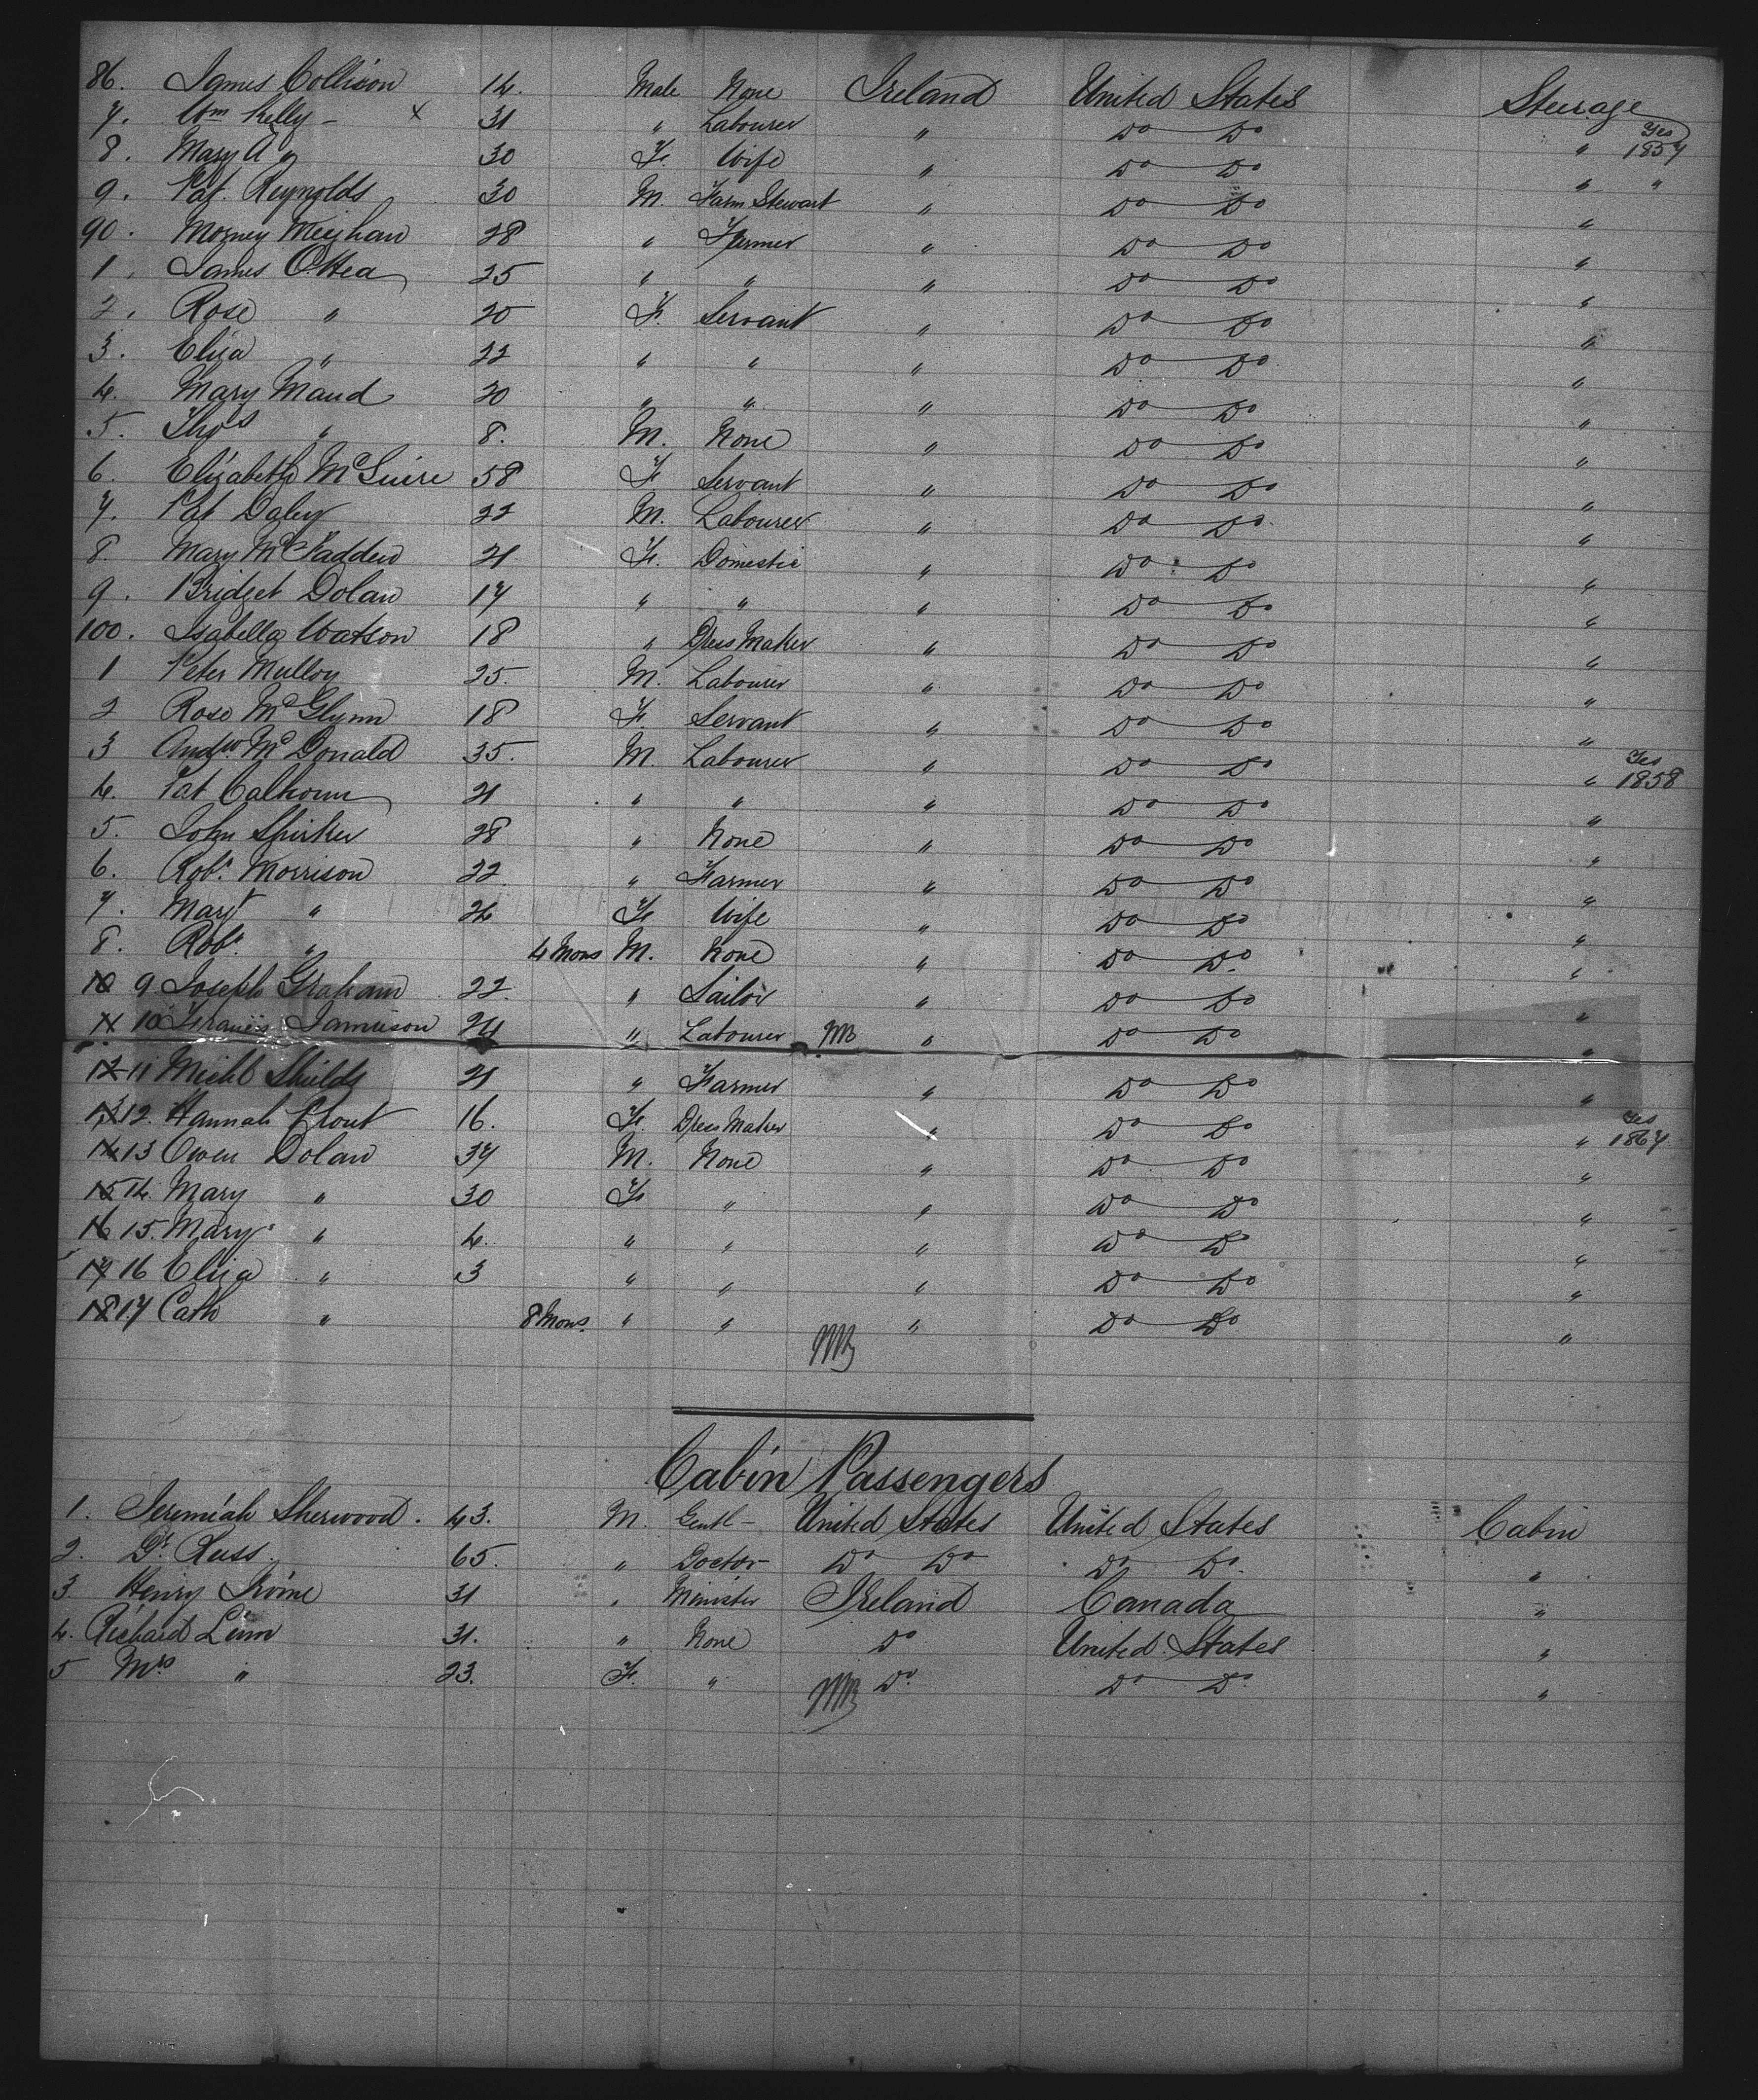 86. James Collison 14. Male None Ireland United States Steerage
7. Wm Kelly - x 31 " Labourer " Do Do " Yes 1857
8. Mary A " 30 F. Wife " Do Do " "
9. Pat. Reynolds 30 M. Farm Stewart " Do Do "
90. Meighan 28 " Farmer " Do Do "
1. James O'Hea 25 " " " Do Do "
2. Rose " 20 F. Servant " Do Do "
3. Eliza " 22 " " " Do Do "
4. Mary Maud 20 " " " Do Do "
5. Thos " 8. M. None " Do Do "
6. Elizabeth McGuire 58 F. Servant " Do Do "
7. Pat Daley 22 M. Labourer " Do Do "
8. Mary McFadden 21 F. Domestic " Do Do "
9. Bridget Dolan 17 " " " Do Do "
100. Isabella Watson 18 " Dress Maker " Do Do "
1 Peter Mulloy 25. M. Labourer " Do Do "
2 Rose McGlynn 18 F. Servant " Do Do "
3 Andw. McDonald 35. M. Labourer " Do Do " Yes 1858
4. Pat Calhoun 21 " " " Do Do "
5. John 28 " None " Do Do "
6. Robt. Morrison 22 " Farmer " Do Do "
7. Margt " 24 F. Wife " Do Do "
8. Robt. " 4 Mons M. None " Do Do "
10 9 Joseph Graham 22. " Sailor " Do Do "
11 10 Francis Jamieson 24 " Labourer " Do Do "
12 11 Michl Shields 21 " Farmer " Do Do "
13 12. Hannah Prout 16. F. Dress Maker " Do Do " Yes 1867
14 13 Owen Dolan 37 M. None " Do Do "
15 14. Mary " 30 F. " " Do Do "
16 15. Mary " 4. " " " Do Do "
17 16 Eliza " 3 " " " Do Do "
18 17 Cath " 8 Mons. " " " Do Do "
Cabin Passengers
1. Jeremiah Sherwood. 43. M. Gentl - United States United States Cabin
2. Dr. Russ. 65. " Doctor Do Do Do Do. "
3. Henry Irvine 31 " Minister Ireland Canada "
4. Richard 31. " None Do United States "
5 Mrs " 23. F. " Do. Do Do. "